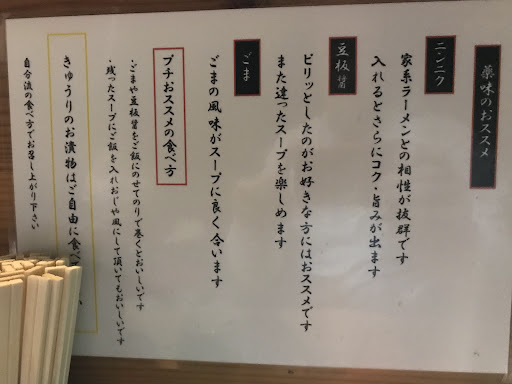 薬味のおススメ
ニンニク
家系ラーメンとの相性が抜群です
入れるとさらにコク・旨みが出ます
豆板醤
ピリッとしたのがお好きな方にはおススメです
また違ったスープを楽しめます
ごま
ごまの風味がスープに良く合います
プチおススメの食べ方
・ごまや豆板醤をご飯にのせてのりで巻くとおいしいです
・残ったスープにご飯を入れおじや風にして頂いてもおいしいです
きゅうりのお漬物はご自由に食べ
自分流の食べ方でお召し上がり下さい